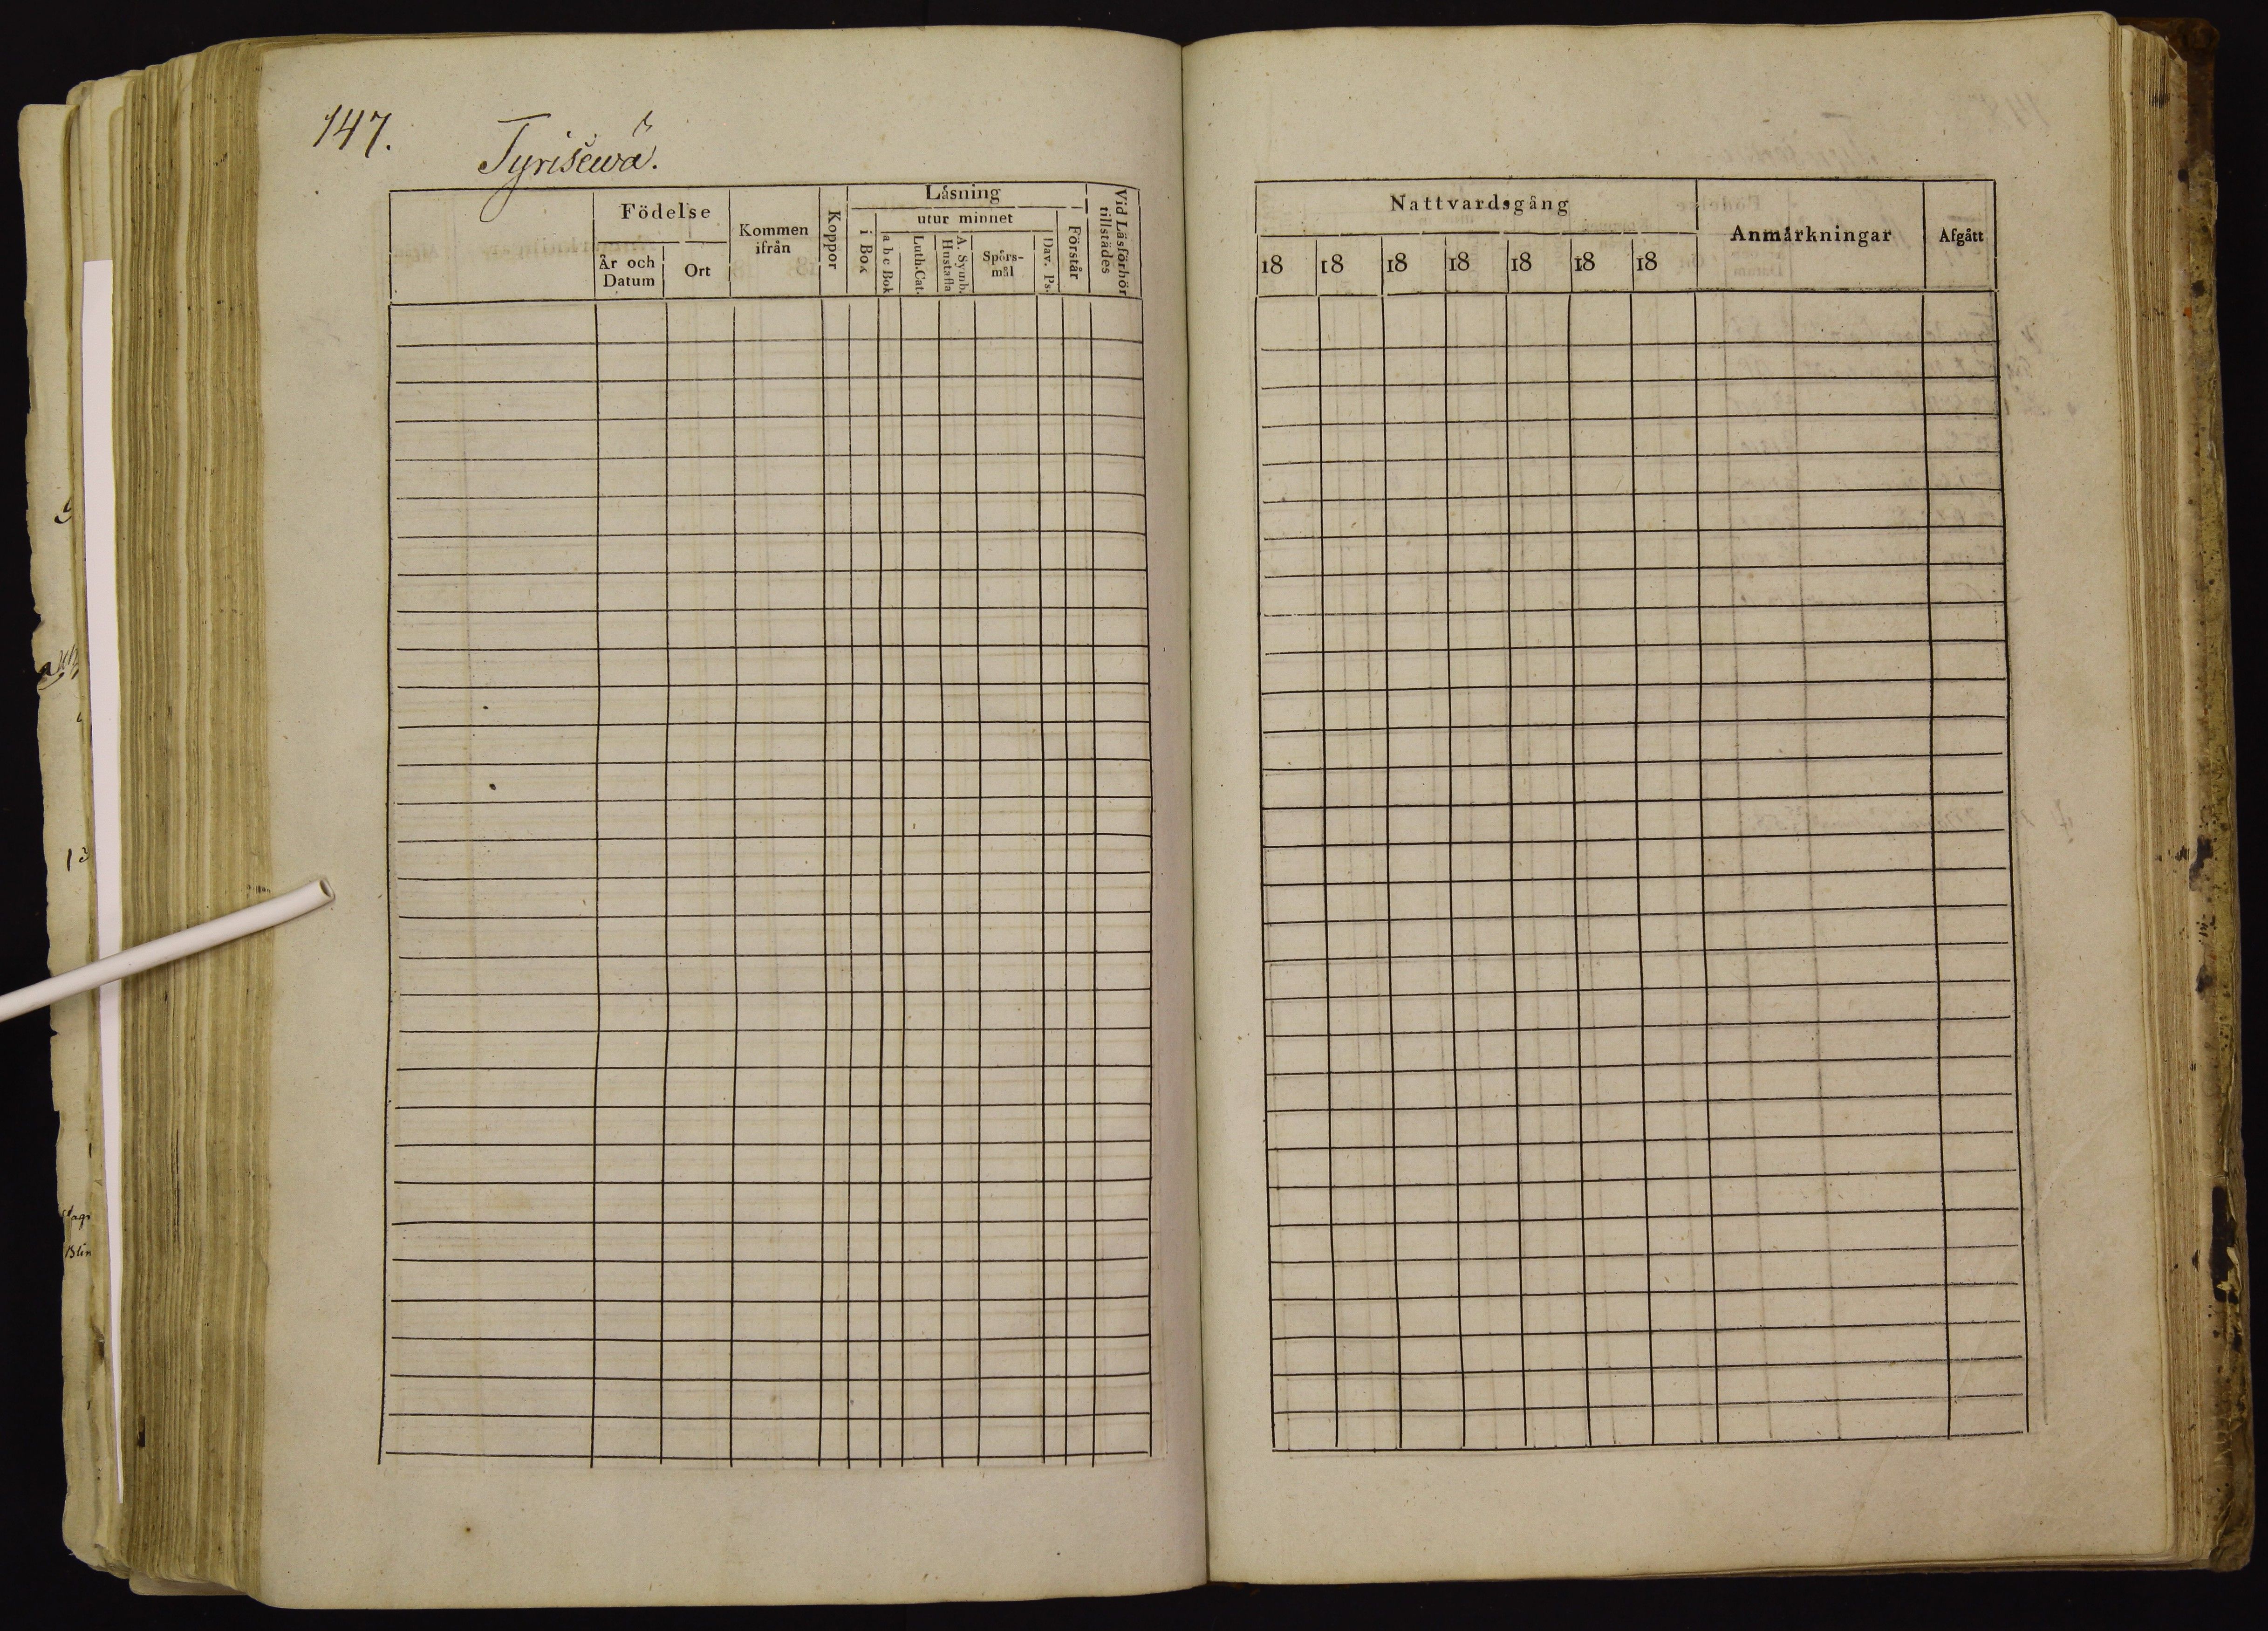 147.
Tyrisewä.
Födelse
År och Datum
Ort
Kommen ifrån
Koppor
Läsning
i Bok
utur minnet
a b c Bok
Luth.Cat.
A. Symb. Hustafla
Spörs-
mål
Dav. Ps.
Förstår
Vid Läsförhör tillstädes
Nattvardsgång
18 18 18 18 18 18 18
Anmärkningar
Afgått